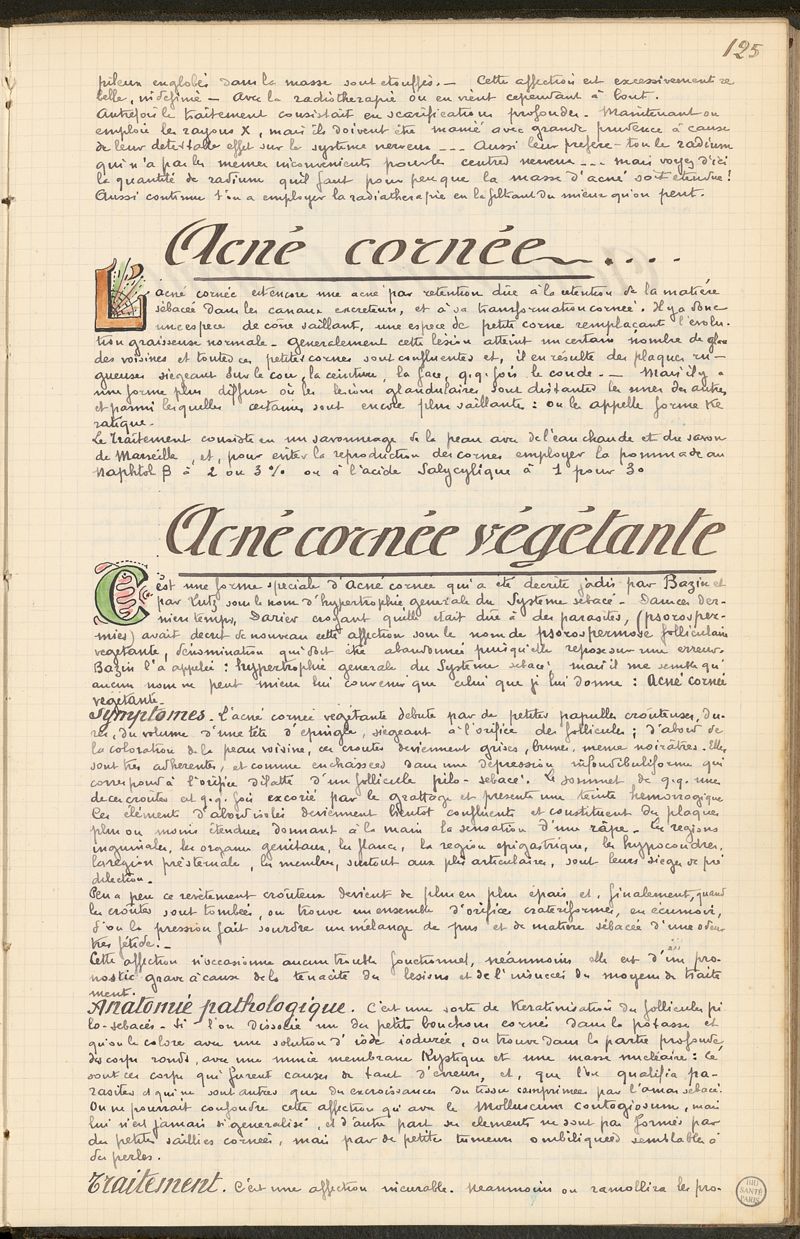 125
pileux englobés dans la masse sont étouffés. — Cette affection est excessivement re
belle, indéfinie — Avec la radiothérapie on en vient cependant à bout.
Autrefois le traitement consistait en scarifications profondes. Maintenant on
emploie les rayons X, mais ils doivent être manié avec grande prudence à cause
de leur détestable effet sur le système nerveux --- Aussi leur préfère-t-on le radium
qui n'a pas les mêmes inconvénients pour les centres nerveux --- mais voyez d'ici
la quantité de radium qu'il faut pour peu que la masse d'acné soit étendue!
Aussi continue t'on a employer la radiothérapie en la filtrant du mieux qu'on peut.
Acné cornée....
L'acné cornée est encore une acné par rétention dûe à la rétention de la matière
sébacée dans les canaux excréteurs, et à sa transformation cornée. Il y a donc
une espèce de cône saillant, une espèce de petite corne remplaçant l'évolu-
tion graisseuse normale. Généralement cette lésion atteint un certain nombre de glan
des voisines et toutes ces petites cornes sont confluentes et, il en résulte des plaques ru-
gueuses siégeant sur le cou, la ceinture, la face, q.q. fois le coude. — Mais il y a
une forme plus diffuse où les lésions glandulaires sont distantes les unes des autres
et parmi lesquelles certaines sont encore plus saillantes : on les appelle forme Ké
ratique.
Le Traitement consiste en un savonnage de la peau avec de l'eau chaude et du savon
de Marseille, et, pour éviter la reproduction des cornes employer la pommade au
Naphtol β à 2 ou 3 % ou à l'acide Salycylique à 1 pour 30
Acné cornée végétante
C'est une forme spéciale d'Acné cornée qui a été décrite jadis par Bazin et
par Lutz sous le nom d'hypertrophie générale du Système sébacé. Dans ces der-
niers temps, Darier croyant qu'elle était dûe à des parasites, (psorosper-
mies) avait décrit de nouveau cette affection sous le nom de psorospermose folliculaire
végétante, dénomination qui doit être abandonnée puisqu'elle repose sur une erreur.
Bazin l'a appelée : hypertrophie générale du Système sébacé mais il me semble qu'
aucun nom ne peut mieux lui convenir que celui que je lui donne : Acné cornée
végétante.
Symptomes. L'acné cornée végétante débute par de petites papules croûteuses, du-
res, du volume d'une tête d'épingle, siégeant à l'orifice des follicules ; d'abord de
la coloration de la peau voisine, ces croûtes deviennent grises, brunes, même noirâtres. Elles
sont très adhérentes, et comme enchâssées dans une dépression infundibuliforme qui
correspond à l'orifice dilatté d'un follicule pilo-sébacé. Le sommet de q.q. unes
de ces croûtes est q.q. fois excorié par le grattage et présente une teinte hémorragique
Ces éléments d'abord isolés deviennent bientôt confluents et constituent des plaques
plus ou moins étendues donnant à la main la sensation d'une râpe. Les régions
inguinales, les organes génitaux, les flancs, la région épigastrique, les hypocondres,
la région présternale, les membres, surtout aux plis articulaires, sont leurs sièges de pré
dilection.
Peu à peu ce revêtement croûteux devient de plus en plus épais et, finalement, quand
les croûtes sont tombées, on trouve un ensemble d'orifices cratériformes, en écumoir,
d'où la pression fait sourdre un mélange de pus et de matière sébacée d'une odeur
très fétide! —
Cette affection n'occasionne aucun trouble fonctionnel, néanmoins elle est d'un pro-
nostic grave à cause de la ténacité des lésions et de l'insuccès des moyens de traite
ment.
Anatomie pathologique. C'est une sorte de Kératinisation des follicules pi
lo-sébacés. Si l'on dissocie un des petits bouchons cornés dans la potasse et
qu'on le colore avec une solution d'iode iodurée, on trouve dans la partie profonde,
des corps ronds, avec une mince membrane Kystique et une masse nucléaire : Ce
sont ces corps qui furent causes de tant d'erreurs, et, que l'on qualifia pa-
rasites et qui ne sont autres que des excroissances du tissu comprimées par l'amas sébacé.
On ne pourrait confondre cette affection qu'avec le Molluscum contagiosum, mais
lui n'est jamais si généralisé, et d'autre part ses éléments ne sont pas formés par
des petites saillies cornées, mais par de petites tumeurs ombiliquées semblables à
des perles.
Traitement. C'est une affection incurable. Néanmoins on ramollira les pro-
BIU
SANTÉ
PARIS